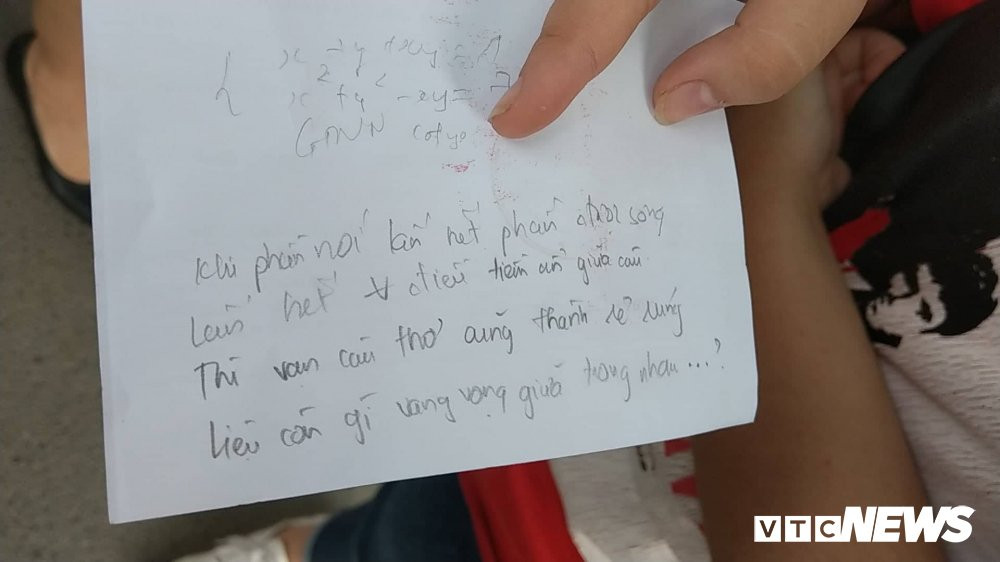 x + y + xy =
x² + y² - xy = 7
Khi phần nói lấn hết phần đời sống
Lấn hết điều tiềm ẩn giữa câu
Thì vạn câu thơ cũng thành lẻ rụng
Liệu còn gì vang vọng giữa trong nhau...?
VTC NEWS